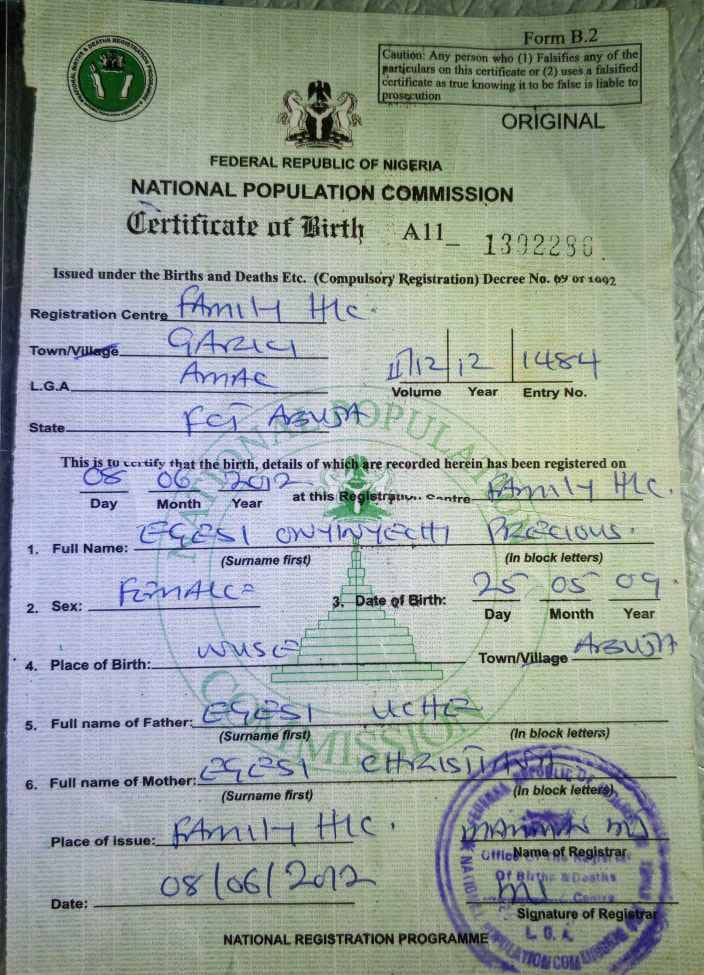 Form B.2
NATIONAL BIRTHS & DEATHS REGISTRATION PROGRAMME
Caution: Any person who (1) Falsifies any of the
particulars on this certificate or (2) uses a falsified
certificate as true knowing it to be false is liable to
prosecution
ORIGINAL
FEDERAL REPUBLIC OF NIGERIA
NATIONAL POPULATION COMMISSION
Certificate of Birth A11_ 1392286.
Issued under the Births and Deaths Etc. (Compulsory Registration) Decree No. 69 of 1992
Registration Centre FAMILY HLC.
Town/Village GARKI
L.G.A. AMAC
11/12 12 1484
Volume Year Entry No.
State FCT ABUJA
This is to certify that the birth, details of which are recorded herein has been registered on
08 06 2012
Day Month Year at this Registration Centre FAMILY HLC.
1. Full Name: EGESI ONYINYECHI PRECIOUS.
(Surname first) (In block letters)
2. Sex: FEMALE 3. Date of Birth: 25 05 09.
Day Month Year
4. Place of Birth: WUSE Town/Village ABUJA
5. Full name of Father: EGESI UCHE
(Surname first) (In block letters)
6. Full name of Mother: EGESI CHRISTIANA
(Surname first) (In block letters)
Place of issue: FAMILY HLC.
Name of Registrar
Office Of The Registrar
Of Births & Deaths
Centre
Date: 08/06/2012
Signature of Registrar
L.G.A.
NATIONAL REGISTRATION PROGRAMME
NATIONAL POPULATION COMMISSION